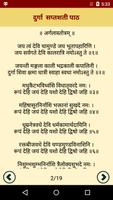 5:33
दुर्गा सप्तशती पाठ
॥ अर्गलास्तोत्रम् ॥
जय त्वं देवि चामुण्डे जय भूतापहारिणि ।
जय सर्वगते देवि कालरात्रि नमोऽस्तु ते ॥
जयन्ती मङ्गला काली भद्रकाली कपालिनी ।
दुर्गा शिवा क्षमा धात्री स्वाहा स्वधा नमोऽस्तु ते ॥
मधुकैटभविध्वंसि विधातृवरदे नमः ।
रूपं देहि जयं देहि यशो देहि द्विषो जहि ॥
महिषासुरनिर्नाशि भक्तानां सुखदे नमः ।
रूपं देहि जयं देहि यशो देहि द्विषो जहि ॥
धूम्रनेत्रवधे देवि धर्मकामार्थदायिनि ।
रूपं देहि जयं देहि यशो देहि द्विषो जहि ॥
रक्तबीजवधे देवि चण्डमुण्डविनाशिनि ।
रूपं देहि जयं देहि यशो देहि द्विषो जहि ॥
निशुम्भशुम्भनिर्नाशि त्रैलोक्यशुभदे नमः ।
2/19